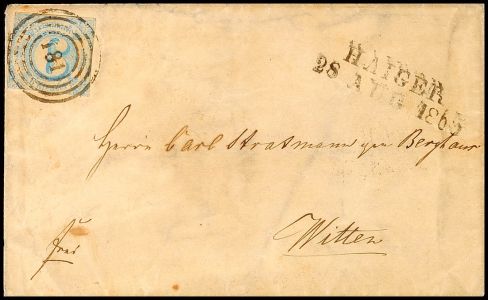 181
HAIGER
28 AUG 1865
Herrn Carl Stratmann gen Berghaus
Witten
frei